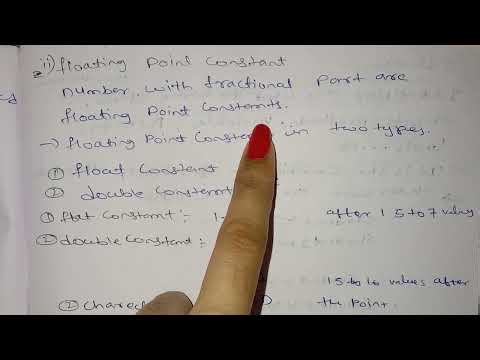 ii) floating Point Constant
number. with fractional Part are
floating Point Constants.
→ floating Point Constan in two types.
① float Constant
② double Constant
① flat Constant :- 1 after 1 5 to 7 values
② double Constant :-
15 to 16 values after
② the point.